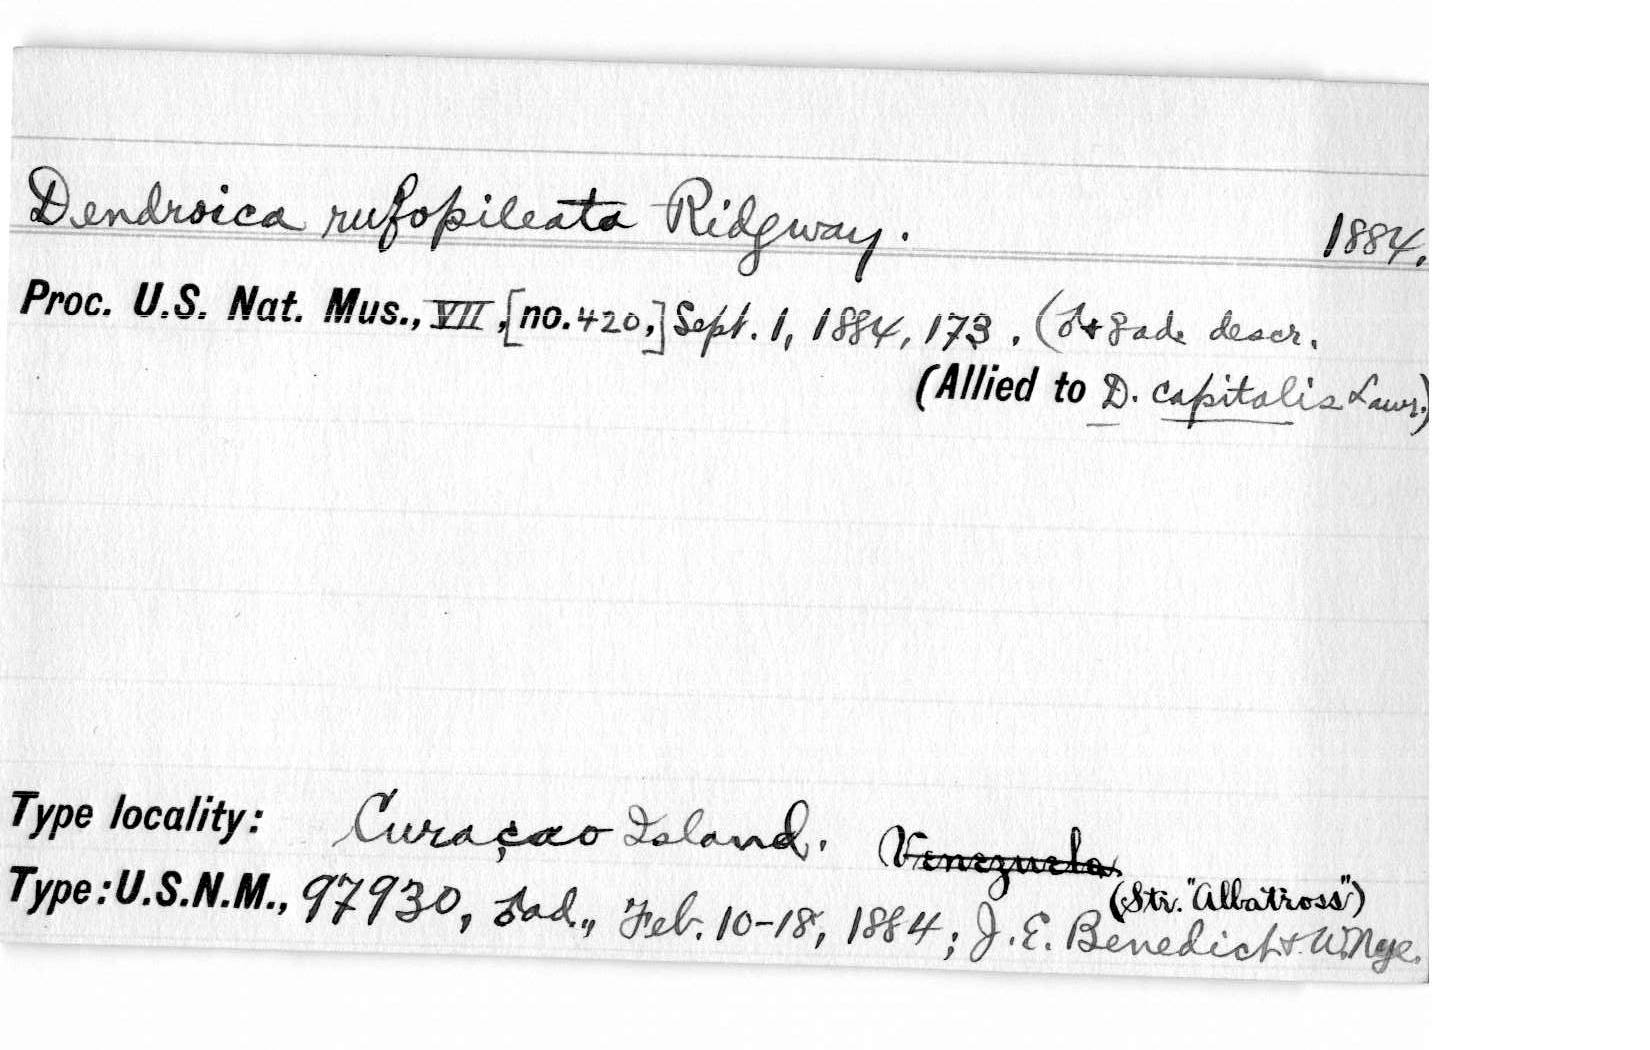 Dendroica rufopileata Ridgway. 1884.
Proc. U.S. Nat. Mus., VII, [no. 420,] Sept. 1, 1884, 173. (♂ + ♀ ad. descr.
(Allied to D. capitalis Lawr.)
Type locality: Curaçao Island. Venezuela.
(Str. "Albatross")
Type: U.S.N.M., 97930, ♂ ad., Feb. 10-18, 1884; J. E. Benedict + W. Nye.